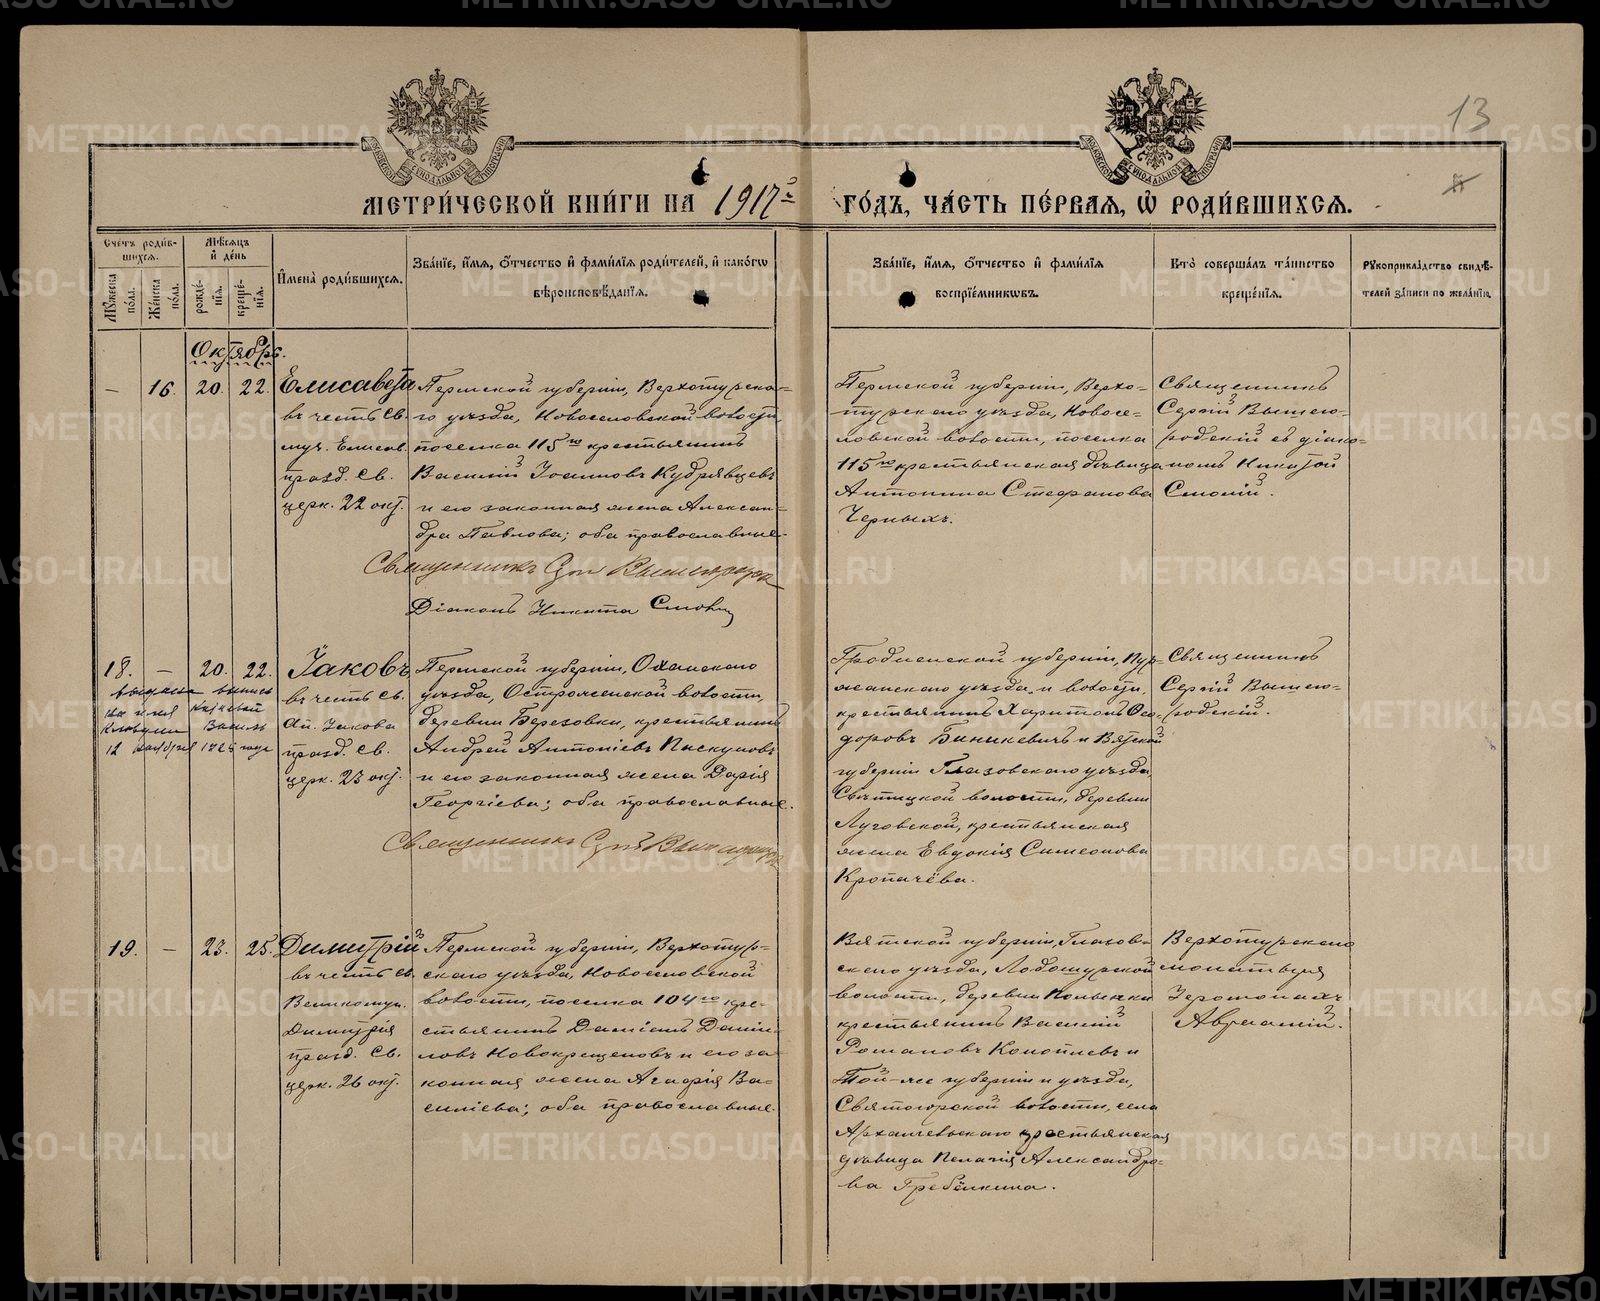 13
МЕТРИ́ЧЕСКОЙ КНИ́ГИ НА 1917й ГО́ДЪ, ЧА́СТЬ ПЕ́РВАЯ, Ѡ РОДИ́ВШИХСЯ.
Сче́тъ роди́в-
шихся.
Му́жеска по́ла.
Же́нска по́ла.
Мѣ́сяцъ и де́нь
рожде́нїя.
креще́нїя.
Имена̀ роди́вшихся.
Зва́нїе, и́мя, о́тчество и фами́лїя роди́телей, и како́гѡ
вѣроисповѣ́данїя.
Зва́нїе, и́мя, о́тчество и фами́лїя
воспрїе́мникѡвъ.
Кто̀ соверша́лъ та́инство
креще́нїя.
Рꙋкоприкла́дство свидѣ́-
телей за́писи по жела́нїю.
Октябрь.
— 16. 20. 22.
Елисавета
въ честь св.
муч. Елисав.
празд. св.
церк. 22 окт.
Пермской губерніи, Верхотурска-
го уѣзда, Новоселовской волости,
поселка 115го крестьянинъ
Василій Іоанновъ Кудрявцевъ
и его законная жена Алексан-
дра Павлова; оба православные.
Священникъ Сергій Вышегородскій
Діаконъ Никита Смо
Пермской губерніи, Верхо-
турскаго уѣзда, Новосе-
ловской волости, поселка
115го крестьянская дѣвица
Антонина Стефанова
Черныхъ.
Священникъ
Сергій Вышего-
родскій съ діако-
номъ Никитой
18. — 20. 22.
выдана выпись
12 1925 года
Іаковъ
въ честь св.
Ап. Іакова
празд. св.
церк. 23 окт.
Пермской губерніи, Оханскаго
уѣзда, Острожской волости,
деревни Березовки, крестьянинъ
Андрей Антоніевъ Пискуновъ
и его законная жена Дарія
Георгіева; оба православные.
Священникъ Сергій Вышегородскій
Гродненской губерніи, Пру-
жанскаго уѣзда и волости,
крестьянинъ Харитонъ Ѳео-
доровъ Биникевичъ и Вятской
губерніи Глазовскаго уѣзда,
волости, деревни
Луговской, крестьянская
жена Евдокія Симеонова
Кропачёва.
Священникъ
Сергій Вышего-
родскій.
19. — 23. 25.
Димитрій
въ честь св.
Великомуч.
Димитрія
празд. св.
церк. 26 окт.
Пермской губерніи, Верхотур-
скаго уѣзда, Новоселовской
волости, поселка 104го кре-
стьянинъ Даніилъ Даніи-
ловъ Новокрещеновъ и его за-
конная жена Агафія Ва-
силіева; оба православные.
Вятской губерніи, Глазов-
скаго уѣзда, Лодошурской
волости, деревни
крестьянинъ Василій
Романовъ Коноплевъ и
Той-же губерніи и уѣзда,
Святогорской волости, села
Архангельскаго крестьянская
дѣвица Пелагія Александро-
ва Гребёнкина.
Верхотурскаго
монастыря
Іеромонахъ
Авраамій.
METRIKI.GASO-URAL.RU